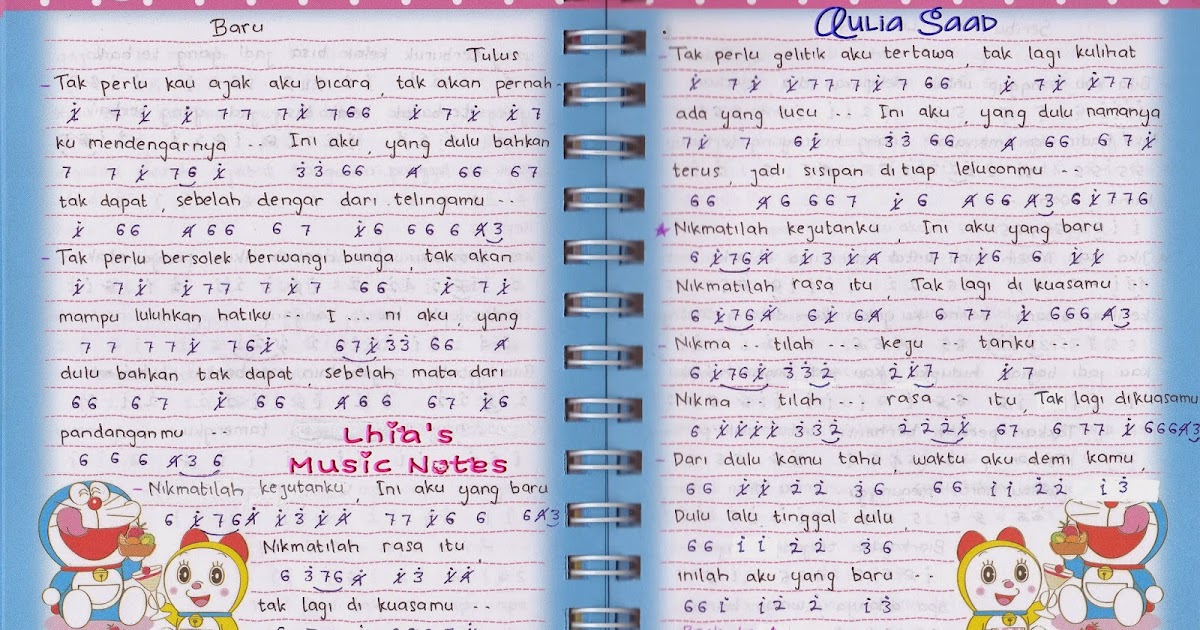 Baru
Tulus
- Tak perlu kau ajak aku bicara, tak akan pernah -
1̸̇ 7 1̸̇ 1̸̇ 7 7 7 1̸̇ 7 6 6 1̸̇ 7 1̸̇ 1̸̇ 7
ku mendengarnya ... Ini aku, yang dulu bahkan
7 7 1̸̇ 7 6 1̸̇ 3̇ 3̇ 6 6 4̸ 6 6 6 7
tak dapat, sebelah dengar dari telingamu ..
1̸̇ 6 6 4̸ 6 6 6 7 1̸̇ 6 6 6 6 4̸ 3
- Tak perlu bersolek berwangi bunga, tak akan
1̸̇ 7 1̸̇ 1̸̇ 7 7 7 1̸̇ 7 6 6 1̸̇ 7 1̸̇
mampu luluhkan hatiku ... I ... ni aku, yang
7 7 7 7 1̸̇ 7 6 1̸̇ 6 7 1̸̇ 3̇ 3̇ 6 6 4̸
dulu bahkan tak dapat, sebelah mata dari
6 6 6 7 1̸̇ 6 6 4̸ 6 6 6 7 1̸̇ 6
pandanganmu ...
6 6 6 4̸ 3 6
Lhia's
Music Notes
- Nikmatilah kejutanku Ini aku yang baru
6 1̸̇ 7 6 4̸ 1̸̇ 3 1̸̇ 4̸ 7 7 1̸̇ 6 6 6 4̸ 3
Nikmatilah rasa itu,
6 3 7 6 4̸ 1̸̇ 3 1̸̇ 4̸
tak lagi di kuasamu ..
Aulia Saad
- Tak perlu gelitik aku tertawa, tak lagi kulihat
1̸̇ 7 1̸̇ 1̸̇ 7 7 7 1̸̇ 7 6 6 1̸̇ 7 1̸̇ 1̸̇ 7 7
ada yang lucu ... Ini aku, yang dulu namanya
7 1̸̇ 7 6 1̸̇ 3̇ 3̇ 6 6 4̸ 6 6 6 7 1̸̇
terus, jadi sisipan ditiap leluconmu ...
6 6 4̸ 6 6 6 7 1̸̇ 6 4̸ 6 6 4̸ 3 6 1̸̇ 7 7 6
★ Nikmatilah kejutanku, Ini aku yang baru
6 1̸̇ 7 6 4̸ 1̸̇ 3 1̸̇ 4̸ 7 7 1̸̇ 6 6 1̸̇ 1̸̇
Nikmatilah rasa itu, Tak lagi di kuasamu ..
6 1̸̇ 7 6 4̸ 6 1̸̇ 6 4̸ 6 7 7 1̸̇ 6 6 6 4̸ 3
- Nikma .. tilah ... keju tanku ...
6 1̸̇ 7 6 1̸̇ 3̇ 3̇ 2̇ 2̇ 1̸̇ 7 1̸̇ 7
Nikma .. tilah ... rasa ... itu, Tak lagi dikuasamu
6 1̸̇ 1̸̇ 1̸̇ 1̸̇ 3̇ 3̇ 2̇ 2̇ 2̇ 2̇ 1̸̇ 6 7 6 7 7 1̸̇ 6 6 6 4̸ 3
- Dari dulu kamu tahu, waktu aku demi kamu,
6 6 1̸̇ 1̸̇ 2̇ 2̇ 3̇ 6 6 6 1̇ 1̇ 2̇ 2̇ 1̇ 3̇
Dulu lalu tinggal dulu,
6 6 1̇ 1̇ 2̇ 2̇ 3̇ 6
inilah aku yang baru ..
6 6 1̇ 1̇ 2̇ 2̇ 1̇ 3̇